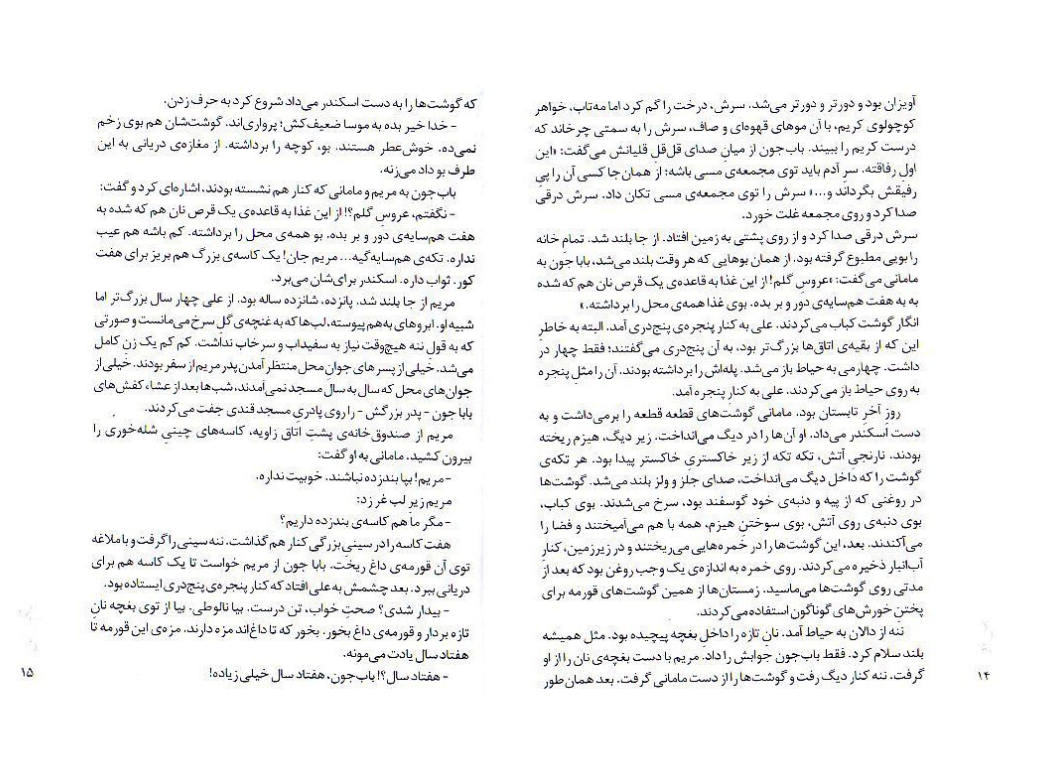 آویزان بود و دورتر و دورتر می‌شد. سرش، درخت را گم کرد اما مه‌تاب، خواهر
کوچولوی کریم، با آن موهای قهوه‌ای و صاف، سرش را به سمتی چرخاند که
درست کریم را ببیند. باب‌جون از میانِ صدای قل‌قلِ قلیانش می‌گفت: «این
اول رفاقته. سرِ آدم باید توی مجمعه‌ی مسی باشه؛ از همان‌جا کسی آن را پیِ
رفیقش بگرداند و...» سرش را توی مجمعه‌ی مسی تکان داد. سرش درقی
صدا کرد و روی مجمعه غلت خورد.
سرش درقی صدا کرد و از روی پشتی به زمین افتاد. از جا بلند شد. تمامِ خانه
را بویی مطبوع گرفته بود. از همان بوهایی که هر وقت بلند می‌شد، بابا جون به
مامانی می‌گفت: «عروسِ گلم! از این غذا به قاعده‌ی یک قرص نان هم که شده
به به هفت هم‌سایه‌ی دور و بر بده. بوی غذا همه‌ی محل را برداشته.»
انگار گوشت کباب می‌کردند. علی به کنار پنجره‌ی پنج‌دری آمد. البته به خاطرِ
این که از بقیه‌ی اتاق‌ها بزرگ‌تر بود، به آن پنج‌دری می‌گفتند؛ فقط چهار در
داشت. چهارمی به حیاط باز می‌شد. پله‌اش را برداشته بودند. آن را مثلِ پنجره
به روی حیاط باز می‌کردند. علی به کنارِ پنجره آمد.
روزِ آخرِ تابستان بود. مامانی گوشت‌های قطعه قطعه را برمی‌داشت و به
دست اسکندر می‌داد. او آن‌ها را در دیگ می‌انداخت. زیر دیگ، هیزم ریخته
بودند. نارنجیِ آتش، تکه تکه از زیر خاکستریِ خاکستر پیدا بود. هر تکه‌ی
گوشت را که داخل دیگ می‌انداخت، صدای جلز و ولز بلند می‌شد. گوشت‌ها
در روغنی که از پیه و دنبه‌ی خود گوسفند بود، سرخ می‌شدند. بوی کباب،
بوی دنبه‌ی روی آتش، بوی سوختنِ هیزم، همه با هم می‌آمیختند و فضا را
می‌آکندند. بعد، این گوشت‌ها را در خمره‌هایی می‌ریختند و در زیرزمین، کنارِ
آب‌انبار ذخیره می‌کردند. روی خمره به اندازه‌ی یک وجب روغن بود که بعد از
مدتی روی گوشت‌ها می‌ماسید. زمستان‌ها از همین گوشت‌های قورمه برای
پختنِ خورش‌های گوناگون استفاده می‌کردند.
ننه از دالان به حیاط آمد. نانِ تازه را داخلِ بغچه پیچیده بود. مثل همیشه
بلند سلام کرد. فقط باب‌جون جوابش را داد. مریم با دست بغچه‌ی نان را از او
گرفت. ننه کنار دیگ رفت و گوشت‌ها را از دست مامانی گرفت. بعد همان‌طور
۱۴
که گوشت‌ها را به دست اسکندر می‌داد شروع کرد به حرف زدن.
- خدا خیر بده به موسا ضعیف‌کش؛ پرواری‌اند. گوشت‌شان هم بوی زخم
نمی‌ده. خوش‌عطر هستند. بو، کوچه را برداشته. از مغازه‌ی دریانی به این
طرف بو داد می‌زنه.
باب‌جون به مریم و مامانی که کنار هم نشسته بودند، اشاره‌ای کرد و گفت:
- نگفتم، عروسِ گلم؟! از این غذا به قاعده‌ی یک قرص نان هم که شده به
هفت هم‌سایه‌ی دور و بر بده. بو همه‌ی محل را برداشته. کم باشه هم عیب
نداره. تکه‌ی هم‌سایه‌گیه... مریم جان! یک کاسه‌ی بزرگ هم بریز برای هفت
کور. ثواب داره. اسکندر برای‌شان می‌برد.
مریم از جا بلند شد. پانزده، شانزده ساله بود. از علی چهار سال بزرگ‌تر اما
شبیه او. ابروهای به‌هم پیوسته، لب‌ها که به غنچه‌ی گلِ سرخ می‌مانست و صورتی
که به قولِ ننه هیچ‌وقت نیاز به سفیداب و سرخاب نداشت. کم کم یک زن کامل
می‌شد. خیلی از پسرهای جوانِ محل منتظر آمدن پدر مریم از سفر بودند. خیلی از
جوان‌های محل که سال به سال مسجد نمی‌آمدند، شب‌ها بعد از عشاء کفش‌های
بابا جون - پدر بزرگش - را روی پادریِ مسجد قندی جفت می‌کردند.
مریم از صندوق‌خانه‌ی پشتِ اتاق زاویه، کاسه‌های چینیِ شله‌خوری را
بیرون کشید. مامانی به او گفت:
- مریم! بپا بندزده نباشند. خوبیت نداره.
مریم زیرِ لب غر زد:
- مگر ما هم کاسه‌ی بندزده داریم؟
هفت کاسه را در سینیِ بزرگی کنار هم گذاشت. ننه سینی را گرفت و با ملاغه
توی آن قورمه‌ی داغ ریخت. بابا جون از مریم خواست تا یک کاسه هم برای
دریانی ببرد. بعد چشمش به علی افتاد که کنار پنجره‌ی پنج‌دری ایستاده بود.
- بیدار شدی؟ صحتِ خواب، تن درست. بیا نالوطی. بیا از توی بغچه نانِ
تازه بردار و قورمه‌ی داغ بخور. بخور که تا داغ‌اند مزه دارند. مزه‌ی این قورمه تا
هفتاد سال یادت می‌مونه.
- هفتاد سال؟! باب‌جون، هفتاد سال خیلی زیاده!
۱۵